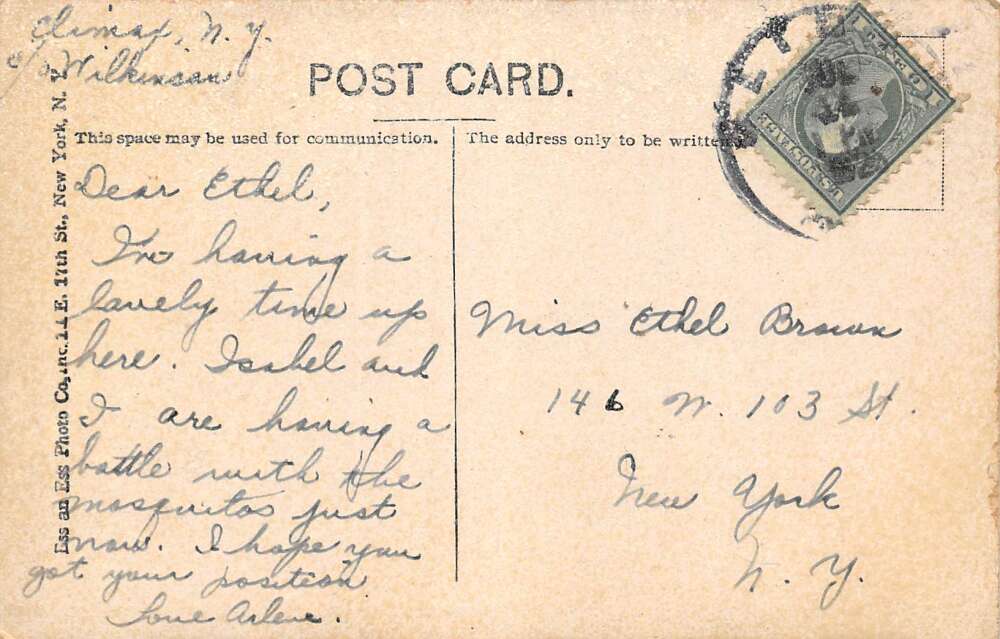 Climax, N.Y.
c/o Wilkinson
POST CARD.
This space may be used for communication.
The address only to be written
Dear Ethel,
I'm having a
lovely time up
here. Isabel and
I are having a
battle with the
mosquitos just
now. I hope you
got your position
Love Arlene.
Miss Ethel Brown
146 W. 103 St.
New York
N. Y.
Ess an Ess Photo Co., Inc. 14 E. 17th St., New York, N. Y.
U.S. POSTAGE
1 CENT 1